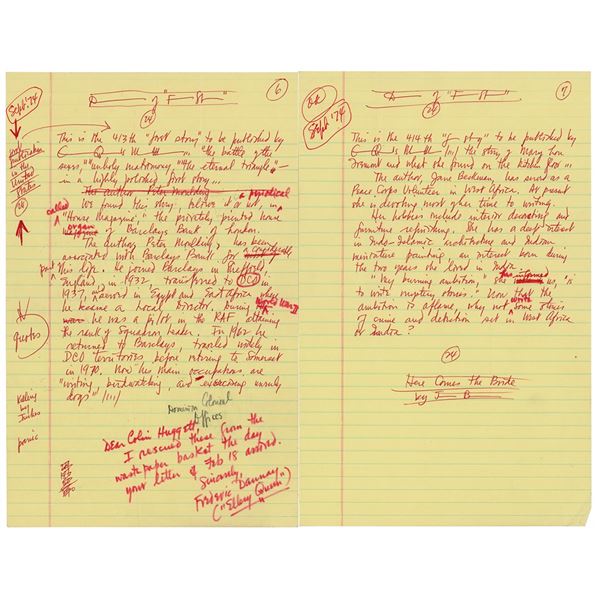 Sept '74
6
D — of "F — St"
24
This is the 413th "first story" to be published by
E — Q — 's M — M — ... "the battle of the
sexes," "unholy matrimony," "the eternal triangle" —
in a highly polished first story ...
The author Peter Moulding
We found this story, believe it or not, in a periodical called
"House Magazine," the privately printed house
organ of Barclays Bank of London.
The author, Peter Moulding, has been
associated with Barclays Bank for
part
his life. He joined Barclays in
England, in 1932, transferred to DCO in
1937, and served in Egypt and East Africa where
he became a Local Director. During World War II
he was a pilot in the RAF attaining
the rank of Squadron Leader. In 1962 he
returned to Barclays, traveled widely in
DCO territories before retiring to Somerset
in 1970. Now his main occupations are
"writing, birdwatching, and exercising unruly
dogs" ////
quotes
Killing
Two
Junkies
panic
Dominion Colonial
Offices
Dear Colin Huggett,
I rescued these from the
wastepaper basket the day
your letter of Feb 18 arrived.
Sincerely,
Frederic Dannay
("Ellery Queen")
OK
Sept '74
7
D — of "F — St"
24
This is the 414th "f — story" to be published by
E — Q — 's M — M — ////
the story of Mary Lou
Dormont and what she found on the kitchen floor ...
The author, Jane Beckman, has served as a
Peace Corps Volunteer in West Africa. At present
she is devoting most of her time to writing.
Her hobbies include interior decorating and
furniture refinishing. She has a deep interest
in Indo-Islamic archeology and Indian
miniature painting, an interest born during
the two years she lived in India.
"My burning ambition," she has informed us, "is
to write mystery stories." Now that the
ambition is aflame, why not write some stories
of crime and detection set in West Africa
or India?
24
Here Comes the Bride
by J — B —